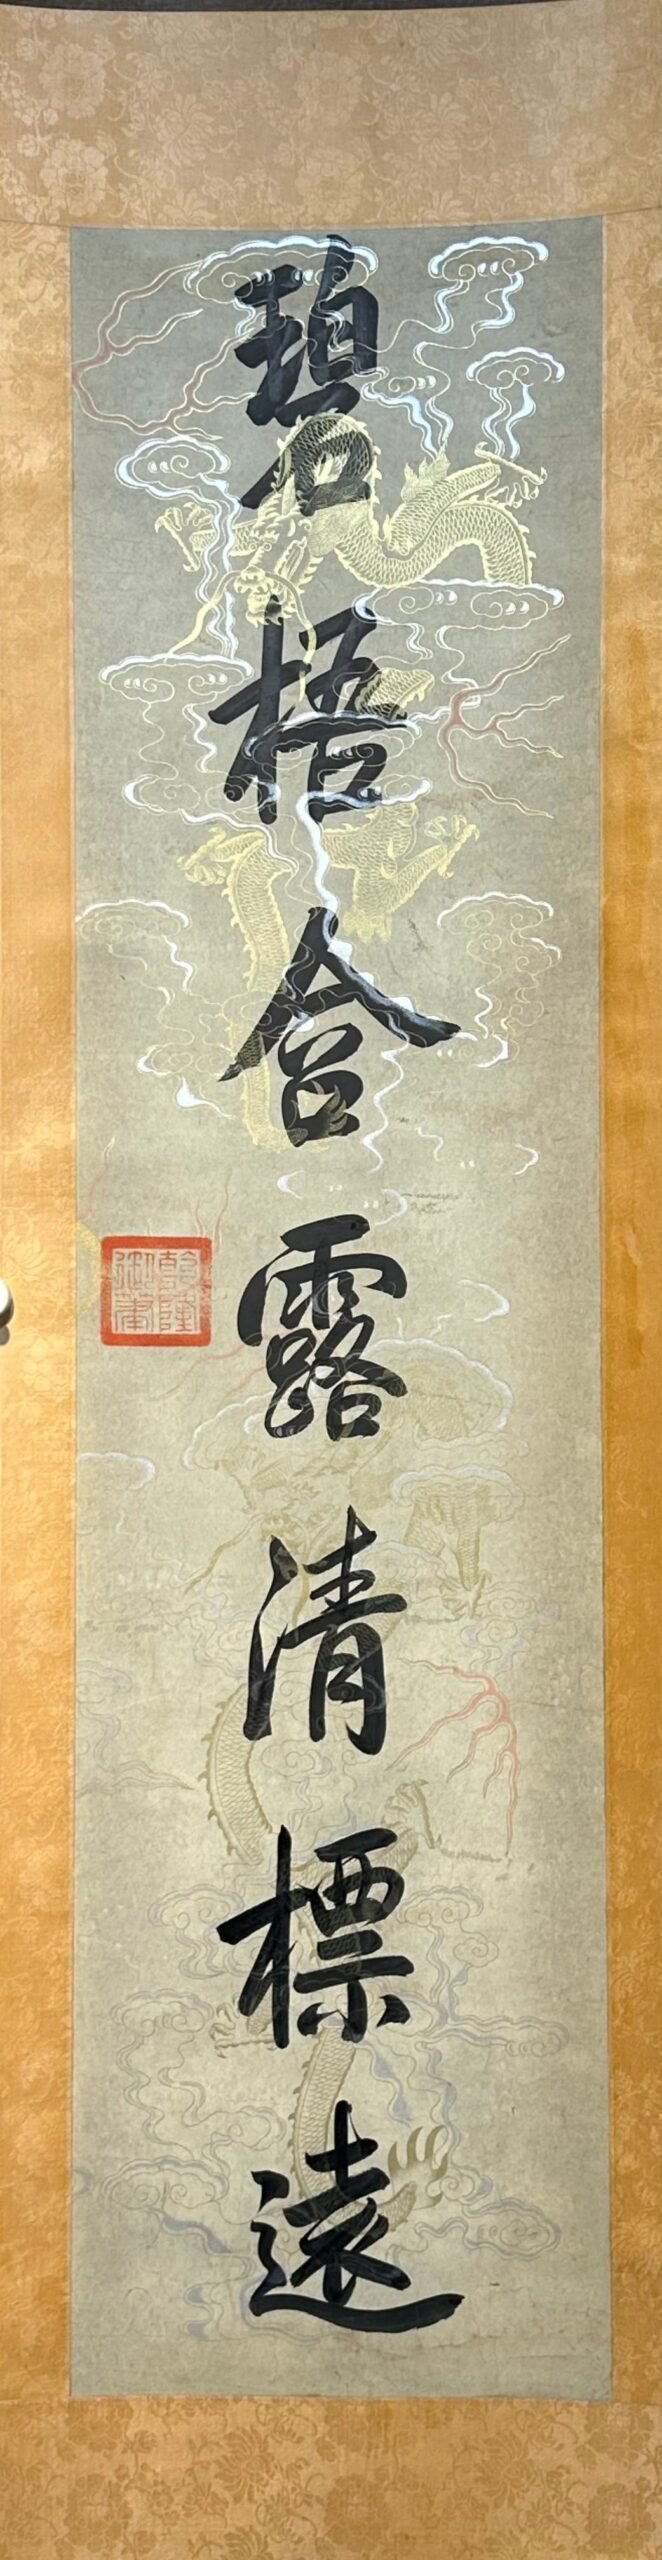 碧梧合露清標遠
乾隆御筆